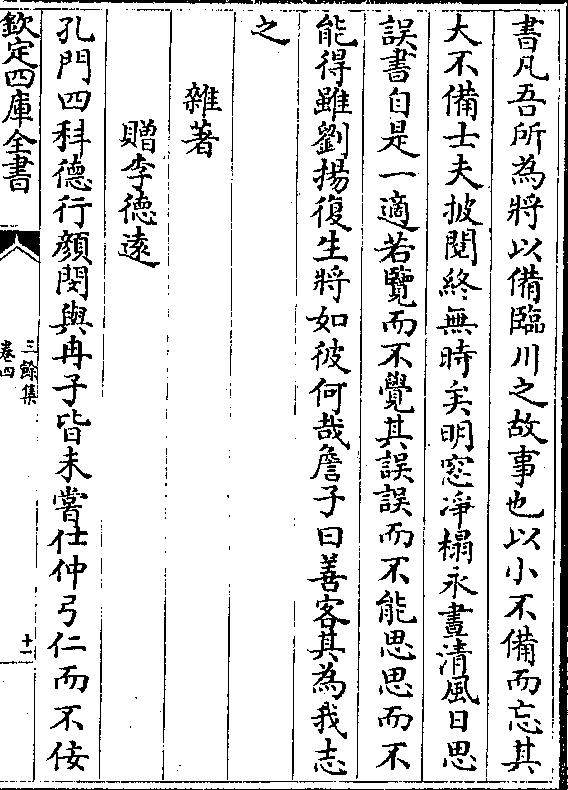 書凡吾所為將以備臨川之故事也以小不備而忘其
大不備士夫披閱終無時矣明窓凈榻永晝清風日思
誤書自是一適若覽而不覺其誤誤而不能思思而不
能得雖劉揚復生將如彼何哉詹子曰善客其為我志
之
雜著
贈李德遠
孔門四科德行顔閔與冉子皆未嘗仕仲弓仁而不佞
欽定四庫全書
三餘集
卷四
十一